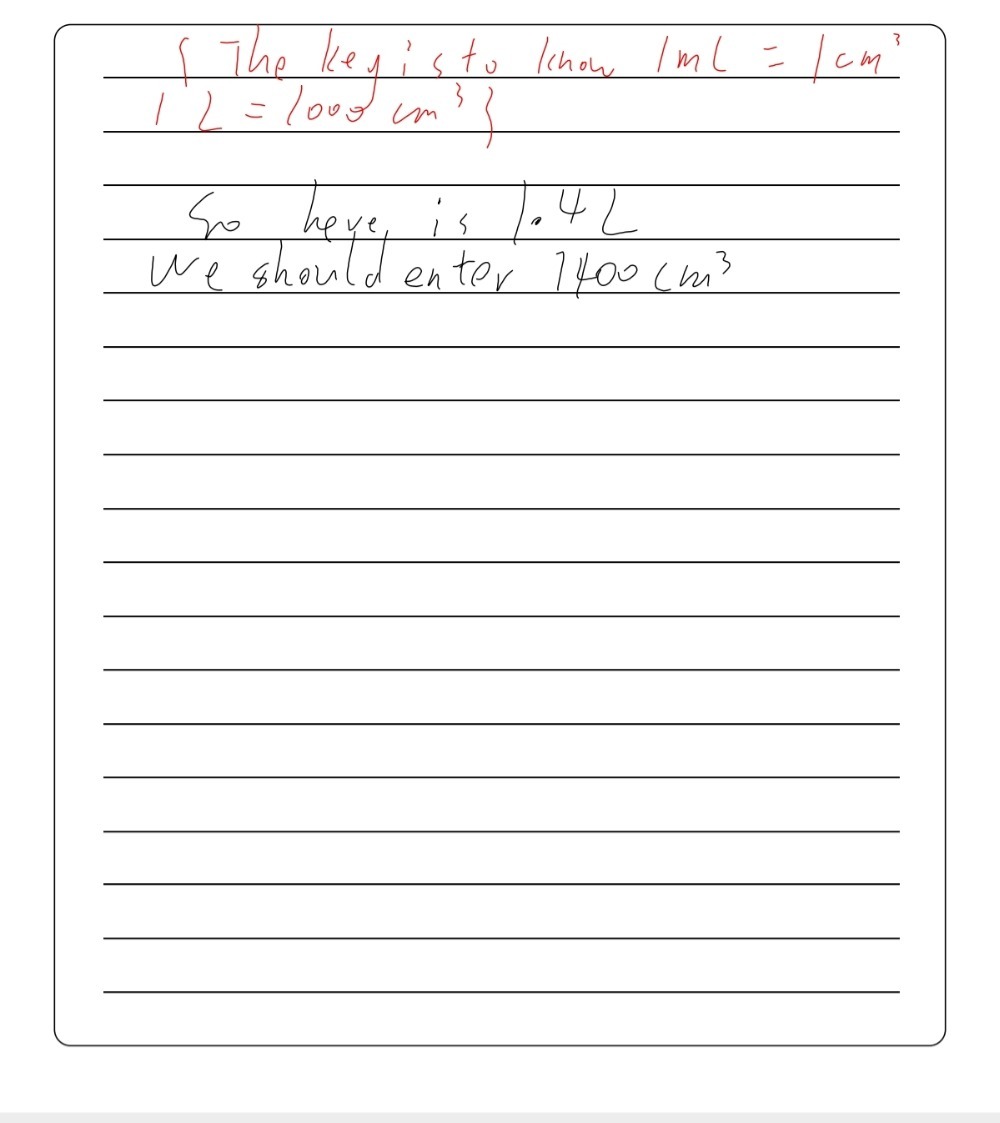 { The key is to know 1mL = 1cm³
1 L = 1000 cm³ }
So here, is 1.4 L
We should enter 1400 cm³